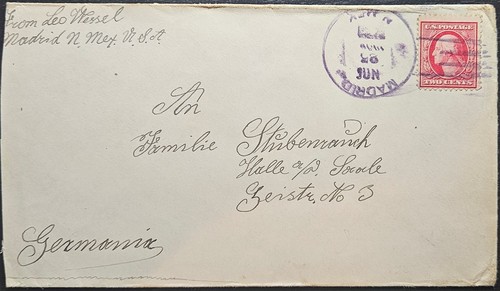 From Leo Wessel
Madrid N. Mex. U.S.A.
MADRID
N. MEX.
JUN
25
U.S. POSTAGE
TWO CENTS
An
Familie Stubenrauch
Halle a/d. Saale
Geistr. No 3
Germania